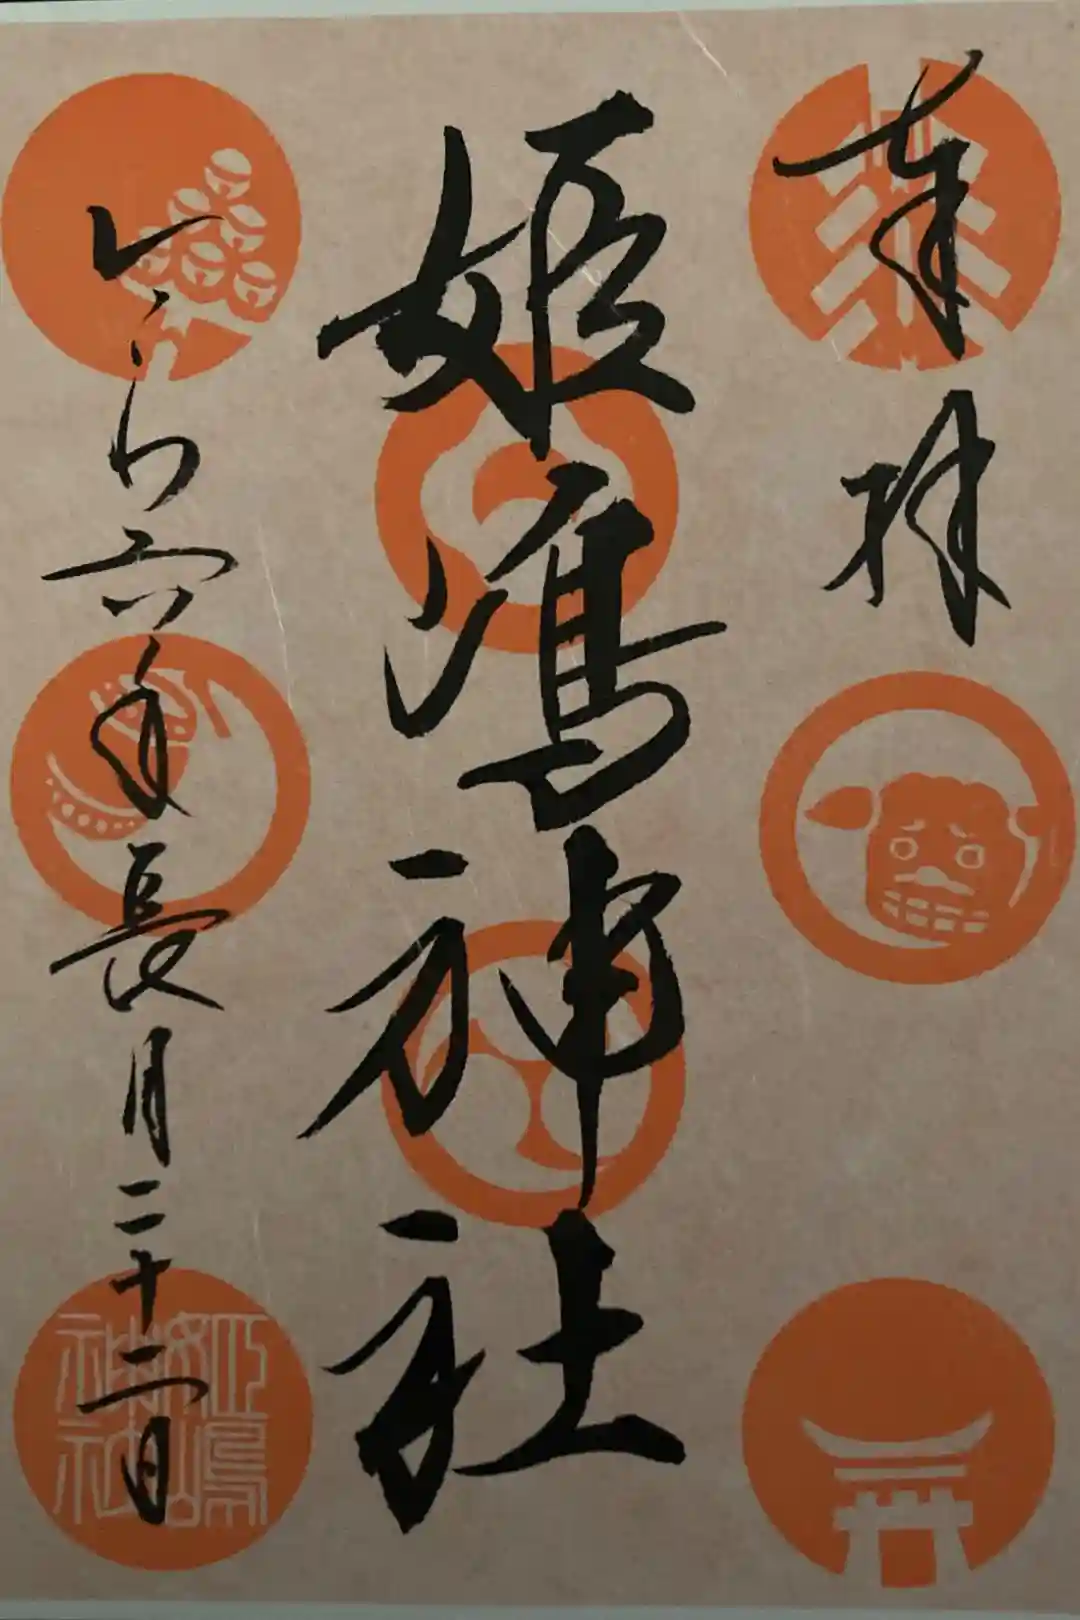 奉拝
姫嶋神社
令和六年長月二十二日
姫嶋
神社